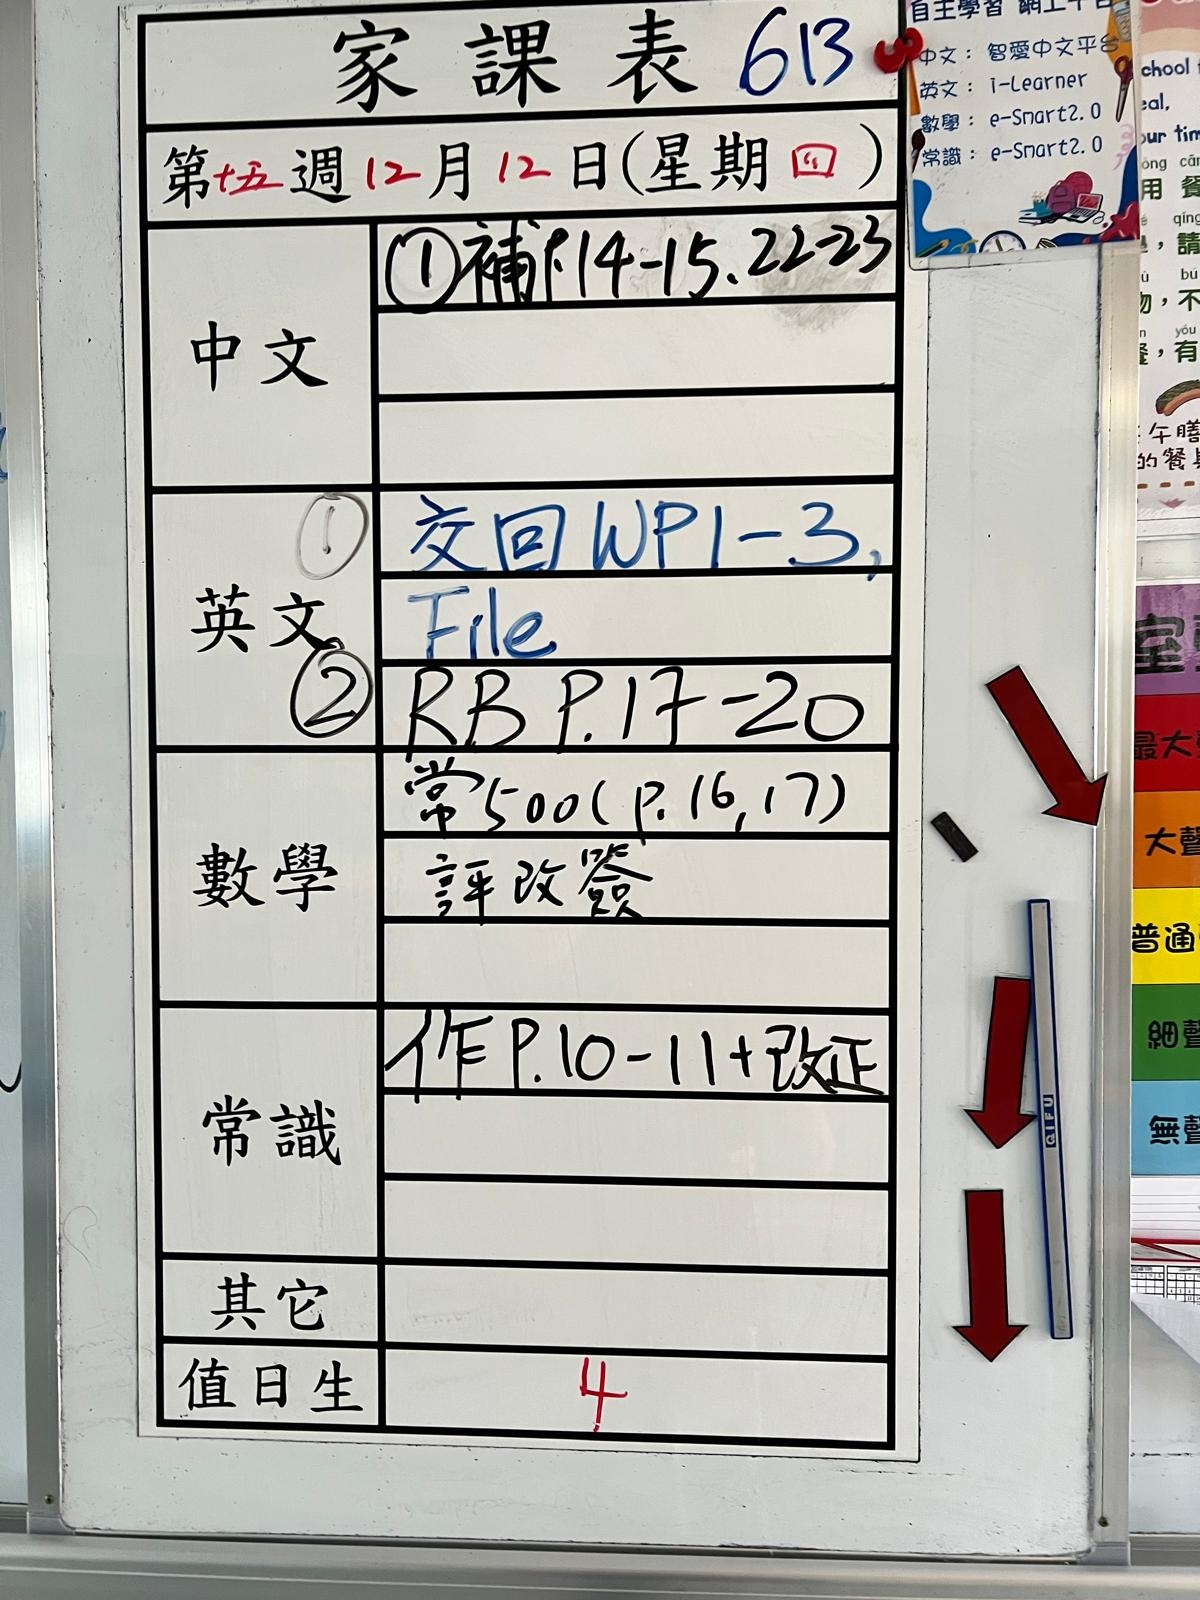 家課表 613
第十五週12月12日(星期四)
中文
①補P.14-15、22-23
英文
① 交回WP1-3,
File
② RB P.17-20
數學
常500(p.16,17)
評改簽
常識
作P.10-11+改正
其它
值日生
4
自主學習 網上平台
中文：智愛中文平台
英文：i-Learner
數學：e-Smart2.0
常識：e-Smart2.0
QIFU
最大
大聲
普通
細聲
無聲